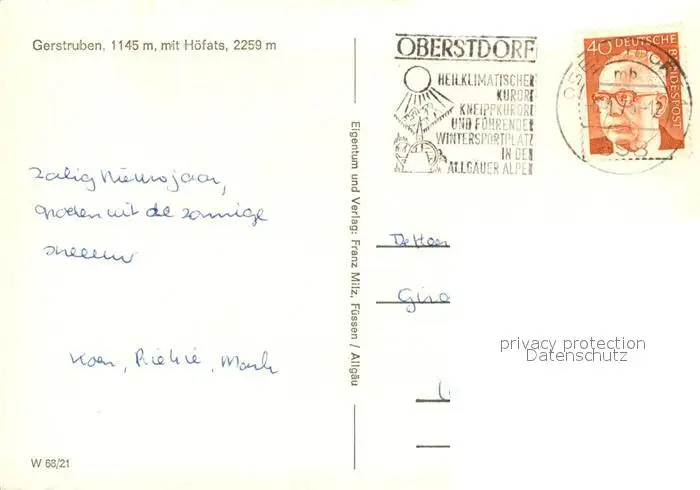 Gerstruben, 1145 m, mit Höfats, 2259 m
OBERSTDORF
HEILKLIMATISCHER
KURORT
KNEIPPKURORT
UND FÜHRENDER
WINTERSPORTPLATZ
IN DEN
ALLGÄUER ALPEN
40 DEUTSCHE
BUNDESPOST
mb
Zalig Nieuwjaar,
groeten uit de zonnige
sneeuw
Koen, Riekie, Mark
Eigentum und Verlag: Franz Milz, Füssen / Allgäu
De Heer
Giro
privacy protection
Datenschutz
W 68/21